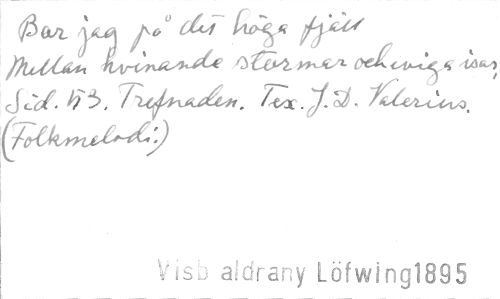 Bor jag på det höga fjäll
Mellan hvinande stormar och eviga isar,
Sid. 53. Trefnaden. Tex. J. D. Valerius.
(Folkmelodi:)
Visb aldrany Löfwing1895